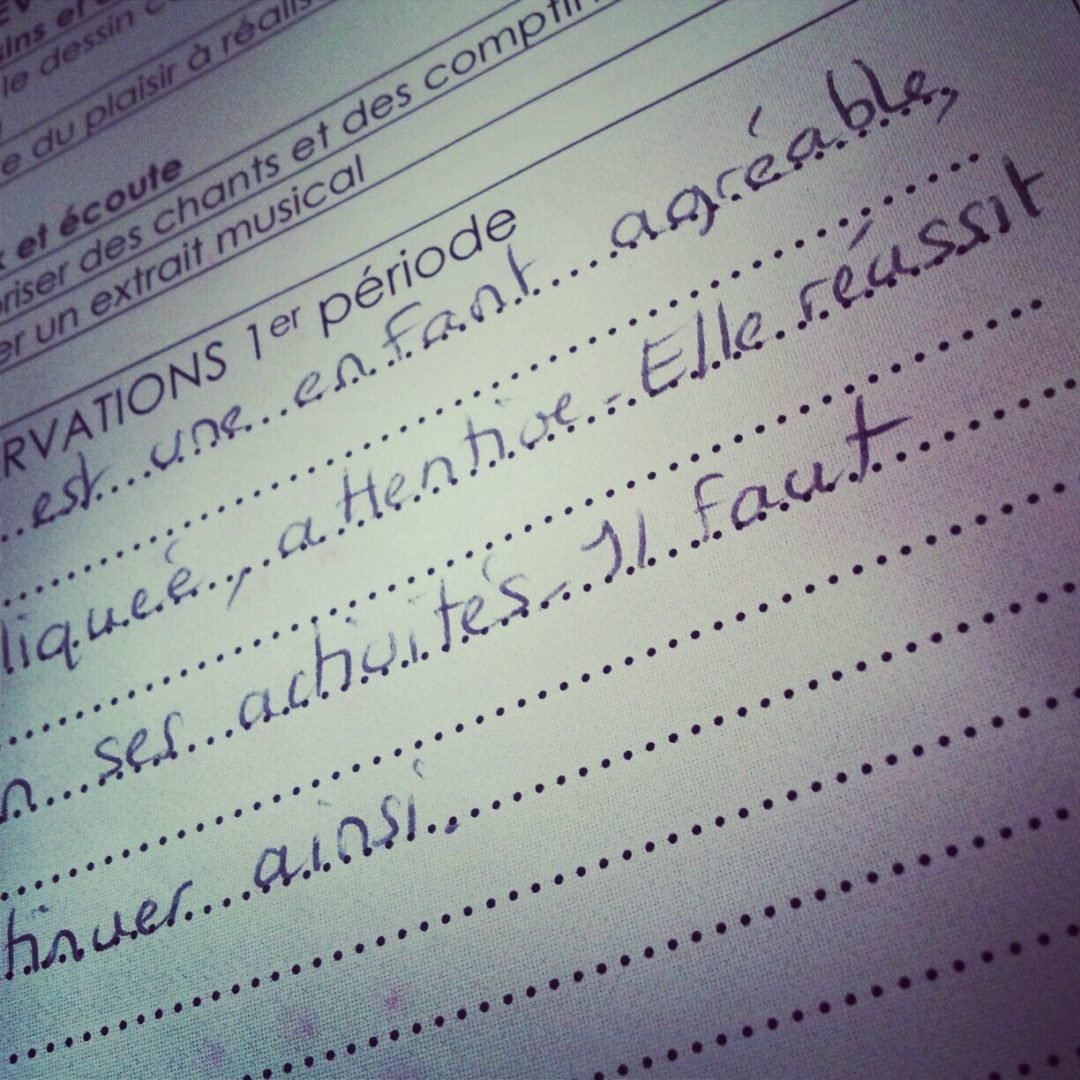 le dessin
e du plaisir à réalis
et écoute
riser des chants et des comptin
er un extrait musical
RVATIONS 1er période
est une enfant agréable,
liquée, attentive. Elle réussit
n ses activités. Il faut
tinuer ainsi.